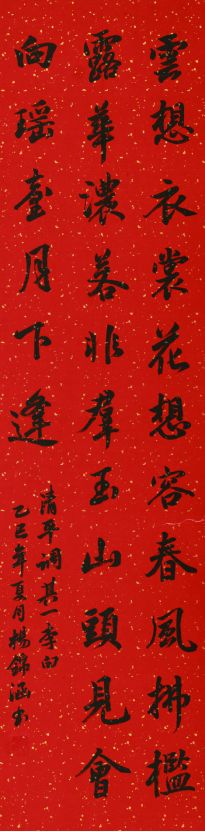 雲想衣裳花想容春風拂檻
露華濃若非羣玉山頭見會
向瑶臺月下逢
清平調其一李白
乙巳年夏月楊錦涵书